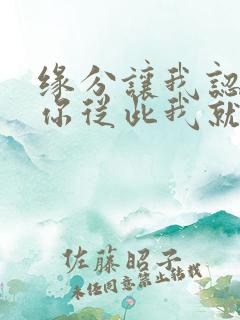 緣分讓我認
你從此我就
佐藤昭子
未任同意禁止转载